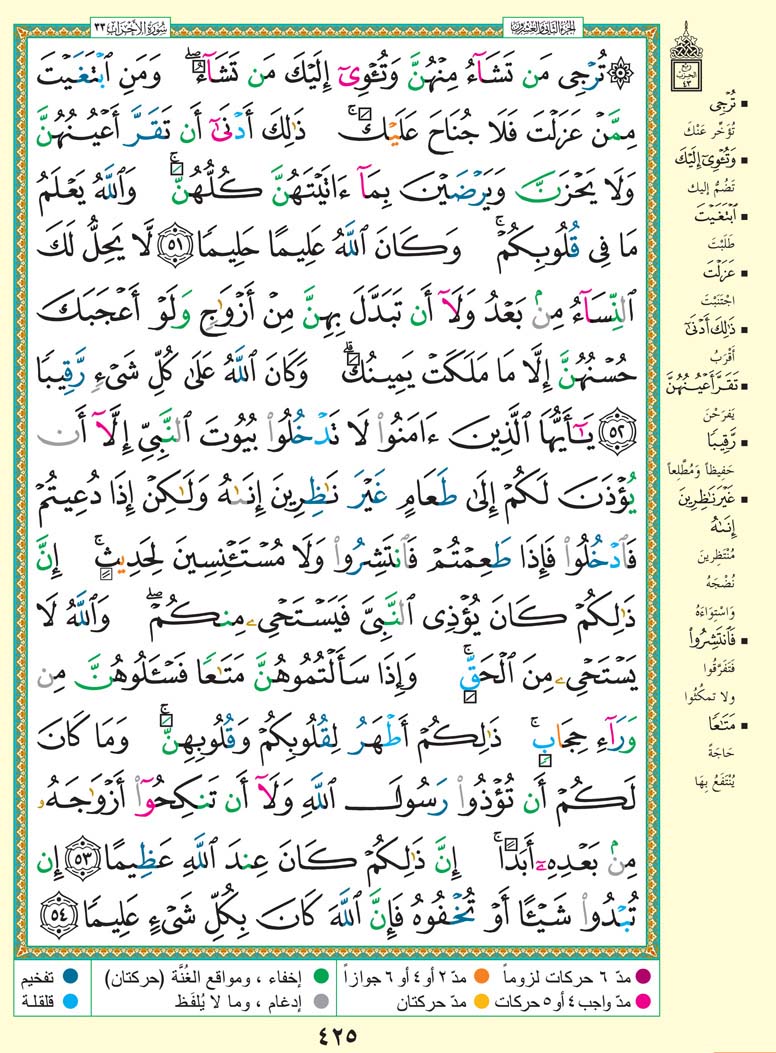 الجزء الثاني والعشرون
سورة الأحزاب ٣٣
۞ تُرْجِى مَن تَشَآءُ مِنْهُنَّ وَتُـْٔوِىٓ إِلَيْكَ مَن تَشَآءُ ۖ وَمَنِ ٱبْتَغَيْتَ
مِمَّنْ عَزَلْتَ فَلَا جُنَاحَ عَلَيْكَ ۚ ذَٰلِكَ أَدْنَىٰٓ أَن تَقَرَّ أَعْيُنُهُنَّ
وَلَا يَحْزَنَّ وَيَرْضَيْنَ بِمَآ ءَاتَيْتَهُنَّ كُلُّهُنَّ ۚ وَٱللَّهُ يَعْلَمُ
مَا فِى قُلُوبِكُمْ ۚ وَكَانَ ٱللَّهُ عَلِيمًا حَلِيمًا ٥١ لَّا يَحِلُّ لَكَ
ٱلنِّسَآءُ مِنۢ بَعْدُ وَلَآ أَن تَبَدَّلَ بِهِنَّ مِنْ أَزْوَٰجٍ وَلَوْ أَعْجَبَكَ
حُسْنُهُنَّ إِلَّا مَا مَلَكَتْ يَمِينُكَ ۗ وَكَانَ ٱللَّهُ عَلَىٰ كُلِّ شَىْءٍ رَّقِيبًا
٥٢ يَـٰٓأَيُّهَا ٱلَّذِينَ ءَامَنُوا۟ لَا تَدْخُلُوا۟ بُيُوتَ ٱلنَّبِىِّ إِلَّآ أَن
يُؤْذَنَ لَكُمْ إِلَىٰ طَعَامٍ غَيْرَ نَـٰظِرِينَ إِنَىٰهُ وَلَـٰكِنْ إِذَا دُعِيتُمْ
فَٱدْخُلُوا۟ فَإِذَا طَعِمْتُمْ فَٱنتَشِرُوا۟ وَلَا مُسْتَـْٔنِسِينَ لِحَدِيثٍ ۚ إِنَّ
ذَٰلِكُمْ كَانَ يُؤْذِى ٱلنَّبِىَّ فَيَسْتَحْىِۦ مِنكُمْ ۖ وَٱللَّهُ لَا
يَسْتَحْىِۦ مِنَ ٱلْحَقِّ ۚ وَإِذَا سَأَلْتُمُوهُنَّ مَتَـٰعًا فَسْـَٔلُوهُنَّ مِن
وَرَآءِ حِجَابٍ ۚ ذَٰلِكُمْ أَطْهَرُ لِقُلُوبِكُمْ وَقُلُوبِهِنَّ ۚ وَمَا كَانَ
لَكُمْ أَن تُؤْذُوا۟ رَسُولَ ٱللَّهِ وَلَآ أَن تَنكِحُوٓا۟ أَزْوَٰجَهُۥ
مِنۢ بَعْدِهِۦٓ أَبَدًا ۚ إِنَّ ذَٰلِكُمْ كَانَ عِندَ ٱللَّهِ عَظِيمًا ٥٣ إِن
تُبْدُوا۟ شَيْـًٔا أَوْ تُخْفُوهُ فَإِنَّ ٱللَّهَ كَانَ بِكُلِّ شَىْءٍ عَلِيمًا ٥٤
ربع
الحزب
٤٣
▪ تُرْجِى
تُؤَخِّر عَنْكَ
▪ وَتُـْٔوِىٓ إِلَيْكَ
تَضُمُّ إليك
▪ ٱبْتَغَيْتَ
طَلَبْتَ
▪ عَزَلْتَ
اجْتَنَبْتَ
▪ ذَٰلِكَ أَدْنَىٰٓ
أَقْرَبُ
▪ تَقَرَّ أَعْيُنُهُنَّ
يَفرَحْنَ
▪ رَّقِيبًا
حَفِيظاً وَمُطَّلِعاً
▪ غَيْرَ نَـٰظِرِينَ
إِنَىٰهُ
مُنْتَظِرينَ
نُضْجَهُ
وَاسْتِوَاءَهُ
▪ فَٱنتَشِرُوا۟
فَتَفَرَّقُوا
ولا تمكُثُوا
▪ مَتَـٰعًا
حَاجَةً
يُنْتَفَعُ بِهَا
مدّ ٦ حركات لزوماً ● مدّ ٢ أو ٤ أو ٦ جوازاً
مدّ واجب ٤ أو ٥ حركات ● مدّ حركتان
إخفاء ، ومواقع الغُنَّة (حركتان)
إدغام ، وما لا يُلفَظ
تفخيم
قلقلة
٤٢٥